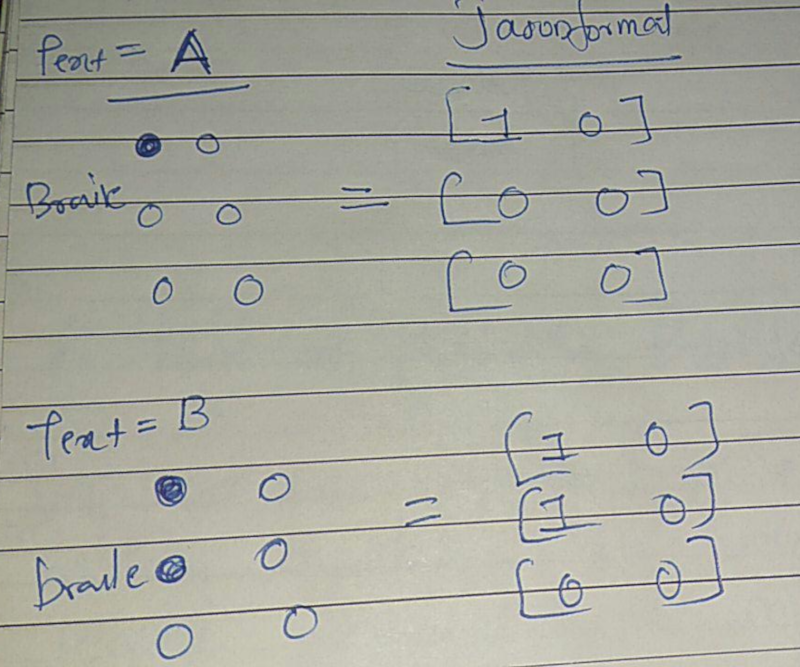 Text = A
Jasonformat
[1 0]
Brail = [0 0]
[0 0]
Text = B
[1 0]
= [1 0]
braile
[0 0]